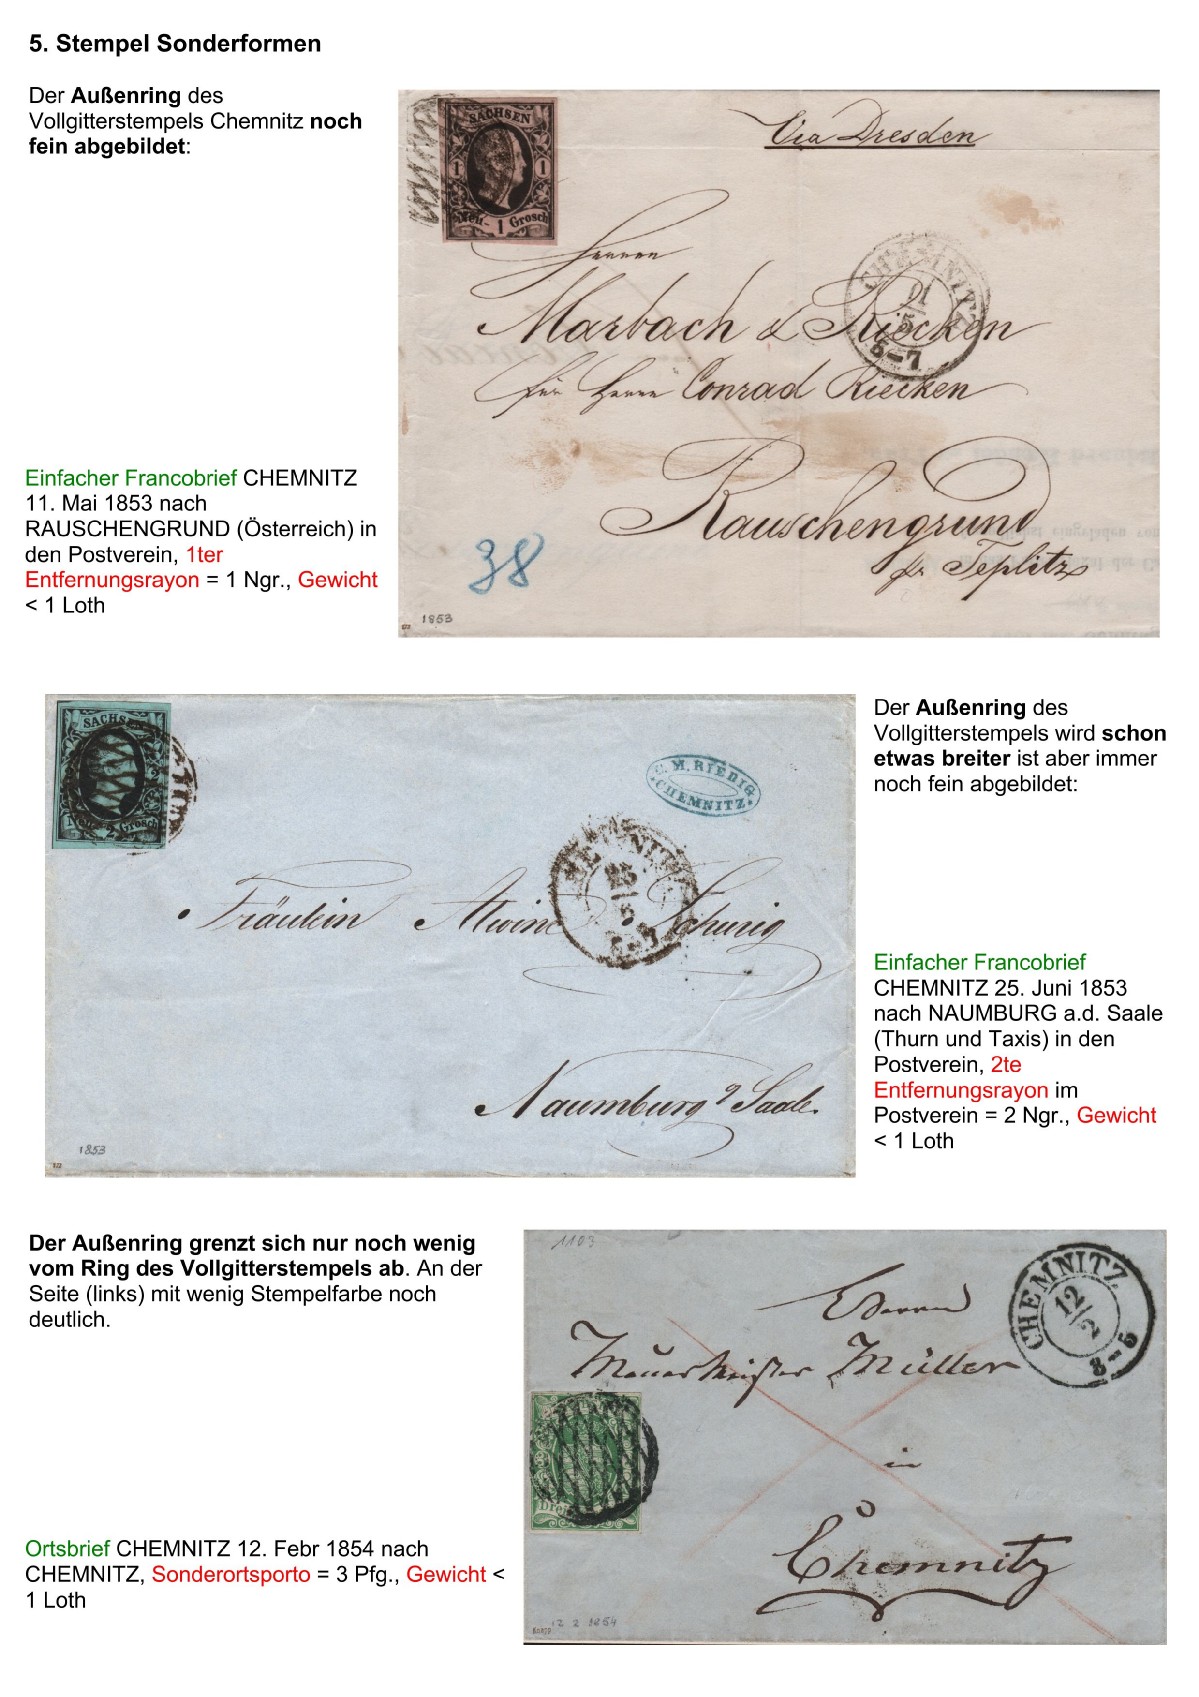 5. Stempel Sonderformen
Der Außenring des
Vollgitterstempels Chemnitz noch
fein abgebildet:
SACHSEN
1 1
Neu- 1 Grosch
Via Dresden
Herren
Marbach & Riecken
für Herrn Conrad Riecken
Rauschengrund
pr Teplitz
CHEMNITZ
11
5
5-7
38
1853
Einfacher Francobrief CHEMNITZ
11. Mai 1853 nach
RAUSCHENGRUND (Österreich) in
den Postverein, 1ter
Entfernungsrayon = 1 Ngr., Gewicht
< 1 Loth
SACHSEN
Neu- 2 Grosch
C. M. RIEDIG
CHEMNITZ.
CHEMNITZ
25
6
Fräulein Alwine
Naumburg a/ Saale.
1853
Der Außenring des
Vollgitterstempels wird schon
etwas breiter ist aber immer
noch fein abgebildet:
Einfacher Francobrief
CHEMNITZ 25. Juni 1853
nach NAUMBURG a.d. Saale
(Thurn und Taxis) in den
Postverein, 2te
Entfernungsrayon im
Postverein = 2 Ngr., Gewicht
< 1 Loth
Der Außenring grenzt sich nur noch wenig
vom Ring des Vollgitterstempels ab. An der
Seite (links) mit wenig Stempelfarbe noch
deutlich.
1103
CHEMNITZ
12
2
3-6
Herrn
Mauermeister Müller
in
Chemnitz
Drei
12 2 1854
Ortsbrief CHEMNITZ 12. Febr 1854 nach
CHEMNITZ, Sonderortsporto = 3 Pfg., Gewicht <
1 Loth